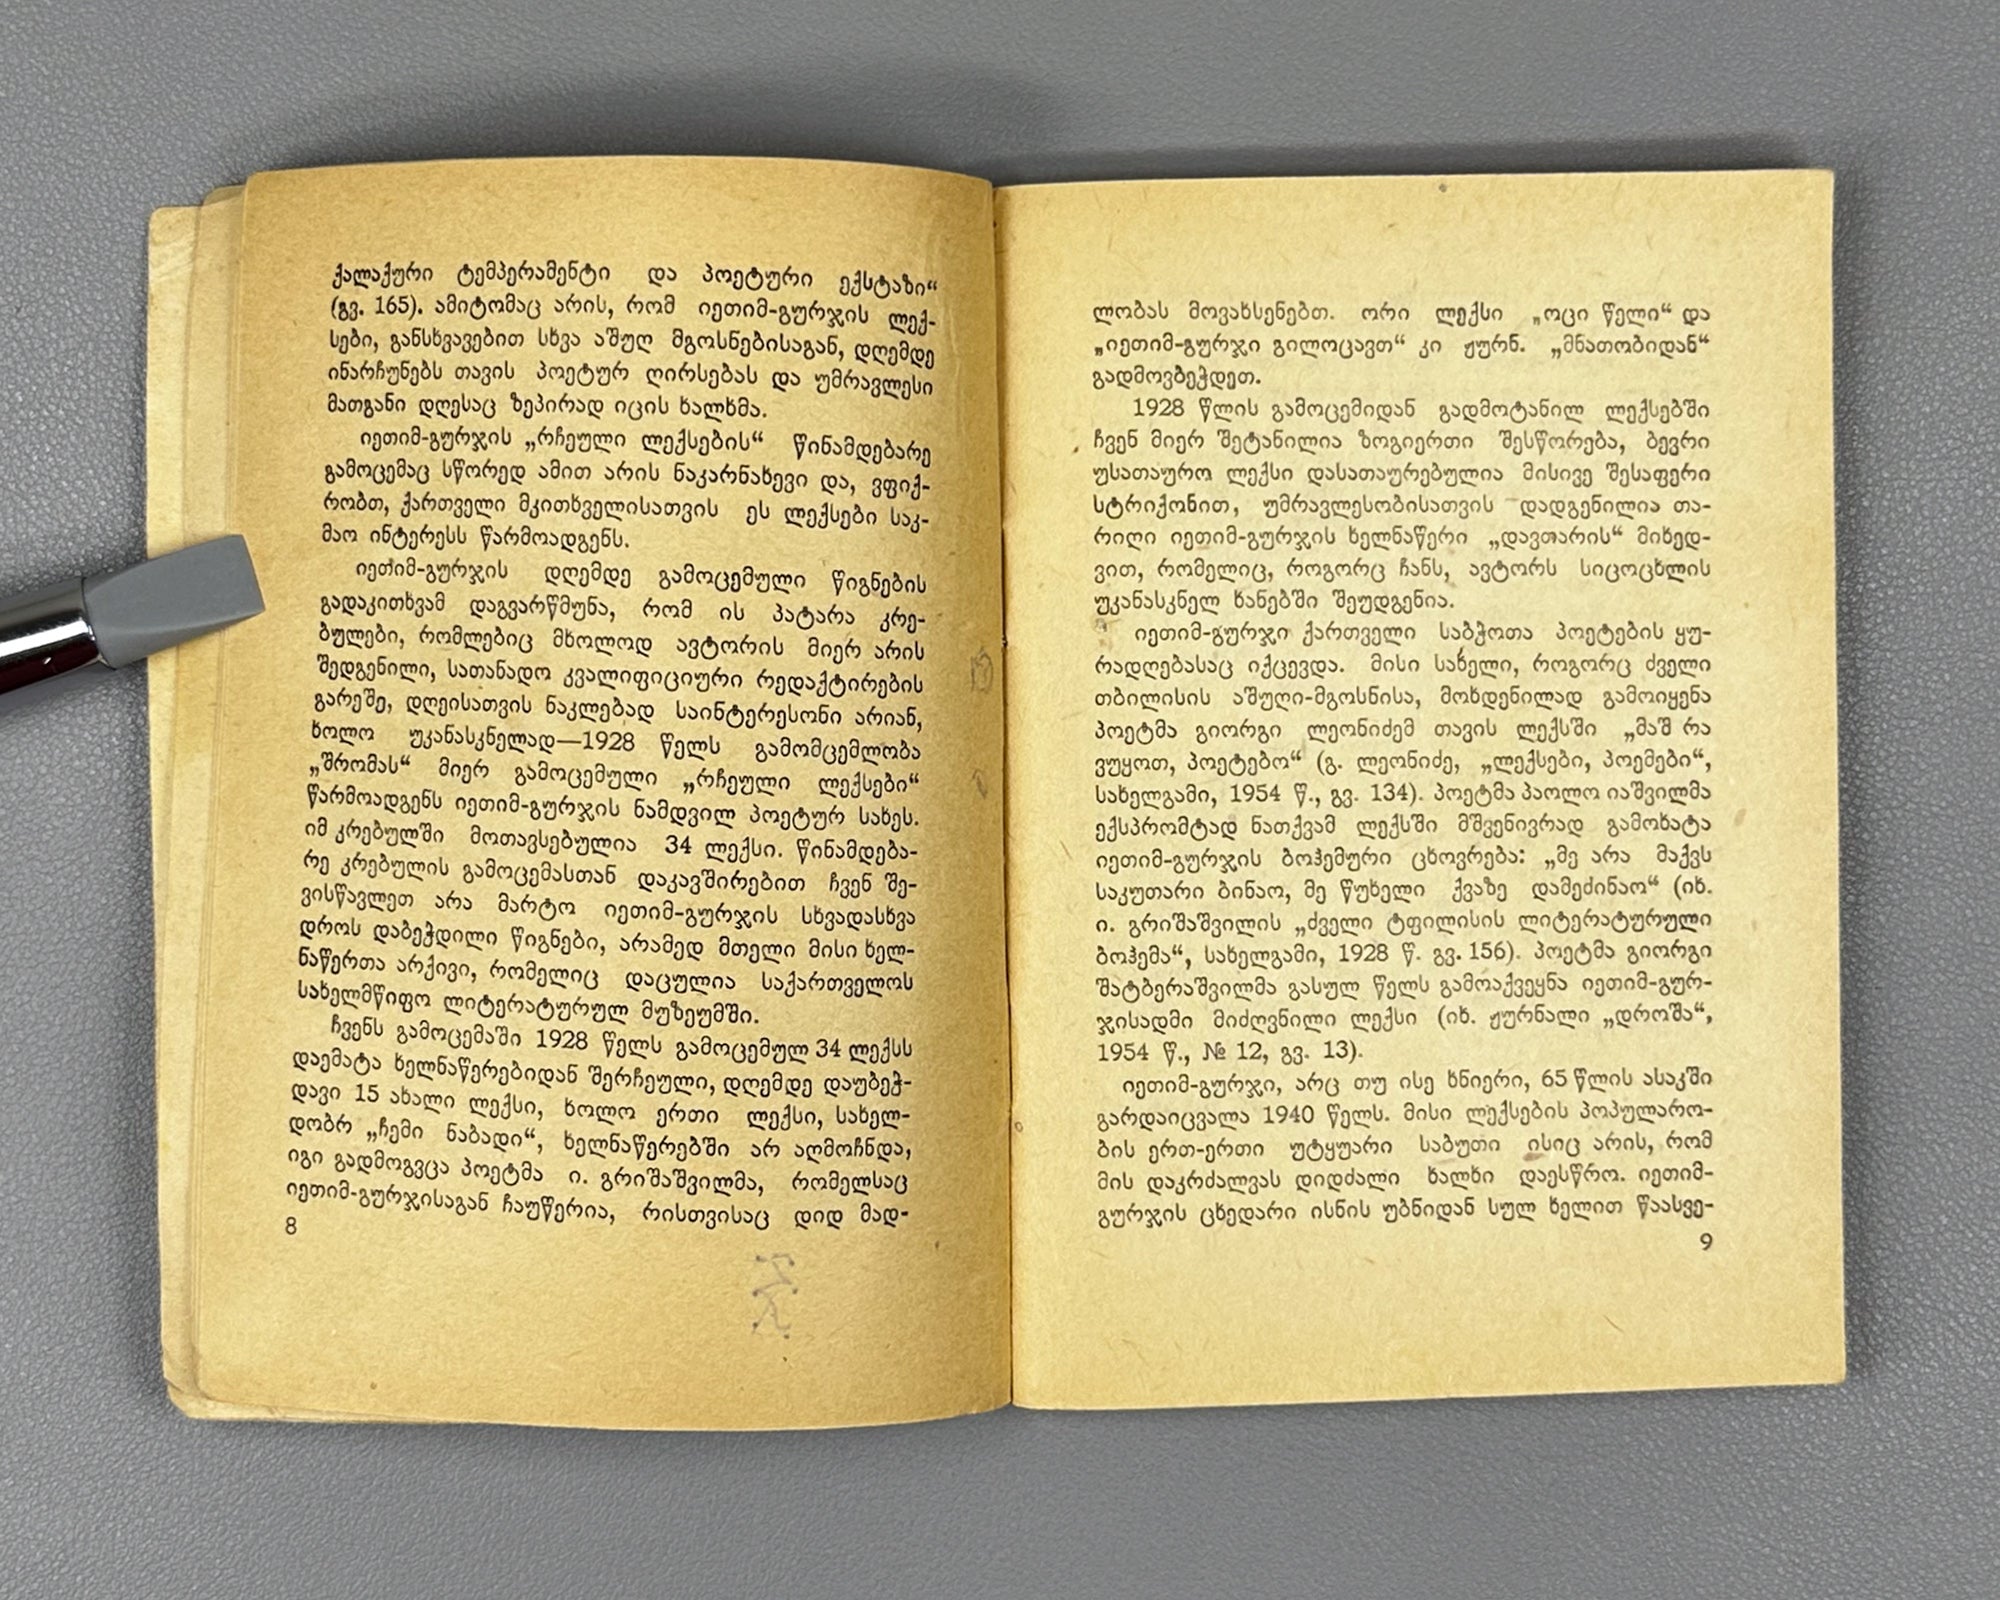 ქალაქური ტემპერამენტი და პოეტური ექსტაზი“
(გვ. 165). ამიტომაც არის, რომ იეთიმ-გურჯის ლექ-
სები, განსხვავებით სხვა აშუღ მგოსნებისაგან, დღემდე
ინარჩუნებს თავის პოეტურ ღირსებას და უმრავლესი
მათგანი დღესაც ზეპირად იცის ხალხმა.
იეთიმ-გურჯის „რჩეული ლექსების“ წინამდებარე
გამოცემაც სწორედ ამით არის ნაკარნახევი და, ვფიქ-
რობთ, ქართველი მკითხველისათვის ეს ლექსები საკ-
მაო ინტერესს წარმოადგენს.
იეთიმ-გურჯის დღემდე გამოცემული წიგნების
გადაკითხვამ დაგვარწმუნა, რომ ის პატარა კრე-
ბულები, რომლებიც მხოლოდ ავტორის მიერ არის
შედგენილი, სათანადო კვალიფიციური რედაქტირების
გარეშე, დღეისათვის ნაკლებად საინტერესონი არიან,
ხოლო უკანასკნელად—1928 წელს გამომცემლობა
„შრომას“ მიერ გამოცემული „რჩეული ლექსები“
წარმოადგენს იეთიმ-გურჯის ნამდვილ პოეტურ სახეს.
იმ კრებულში მოთავსებულია 34 ლექსი. წინამდება-
რე კრებულის გამოცემასთან დაკავშირებით ჩვენ შე-
ვისწავლეთ არა მარტო იეთიმ-გურჯის სხვადასხვა
დროს დაბეჭდილი წიგნები, არამედ მთელი მისი ხელ-
ნაწერთა არქივი, რომელიც დაცულია საქართველოს
სახელმწიფო ლიტერატურულ მუზეუმში.
ჩვენს გამოცემაში 1928 წელს გამოცემულ 34 ლექსს
დაემატა ხელნაწერებიდან შერჩეული, დღემდე დაუბეჭ-
დავი 15 ახალი ლექსი, ხოლო ერთი ლექსი, სახელ-
დობრ „ჩემი ნაბადი“, ხელნაწერებში არ აღმოჩნდა,
იგი გადმოგვცა პოეტმა ი. გრიშაშვილმა, რომელსაც
იეთიმ-გურჯისაგან ჩაუწერია, რისთვისაც დიდ მად-
8
ლობას მოვახსენებთ. ორი ლექსი „ოცი წელი“ და
„იეთიმ-გურჯი გილოცავთ“ კი ჟურნ. „მნათობიდან“
გადმოვბეჭდეთ.
1928 წლის გამოცემიდან გადმოტანილ ლექსებში
ჩვენ მიერ შეტანილია ზოგიერთი შესწორება, ბევრი
უსათაურო ლექსი დასათაურებულია მისივე შესაფერი
სტრიქონით, უმრავლესობისათვის დადგენილია თა-
რიღი იეთიმ-გურჯის ხელნაწერი „დავთარის“ მიხედ-
ვით, რომელიც, როგორც ჩანს, ავტორს სიცოცხლის
უკანასკნელ ხანებში შეუდგენია.
იეთიმ-გურჯი ქართველი საბჭოთა პოეტების ყუ-
რადღებასაც იქცევდა. მისი სახელი, როგორც ძველი
თბილისის აშუღი-მგოსნისა, მოხდენილად გამოიყენა
პოეტმა გიორგი ლეონიძემ თავის ლექსში „მაშ რა
ვუყოთ, პოეტებო“ (გ. ლეონიძე, „ლექსები, პოემები“,
სახელგამი, 1954 წ., გვ. 134). პოეტმა პაოლო იაშვილმა
ექსპრომტად ნათქვამ ლექსში მშვენივრად გამოხატა
იეთიმ-გურჯის ბოჰემური ცხოვრება: „მე არა მაქვს
საკუთარი ბინაო, მე წუხელი ქვაზე დამეძინაო“ (იხ.
ი. გრიშაშვილის „ძველი ტფილისის ლიტერატურული
ბოჰემა“, სახელგამი, 1928 წ. გვ. 156). პოეტმა გიორგი
შატბერაშვილმა გასულ წელს გამოაქვეყნა იეთიმ-გურ-
ჯისადმი მიძღვნილი ლექსი (იხ. ჟურნალი „დროშა“,
1954 წ., № 12, გვ. 13).
იეთიმ-გურჯი, არც თუ ისე ხნიერი, 65 წლის ასაკში
გარდაიცვალა 1940 წელს. მისი ლექსების პოპულარო-
ბის ერთ-ერთი უტყუარი საბუთი ისიც არის, რომ
მის დაკრძალვას დიდძალი ხალხი დაესწრო. იეთიმ-
გურჯის ცხედარი ისნის უბნიდან სულ ხელით წაასვე-
9